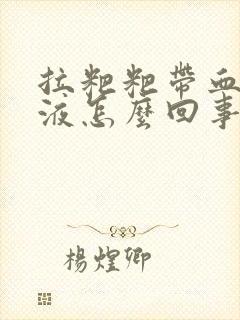 拉粑粑帶血
液怎麼回事
楊煌卿